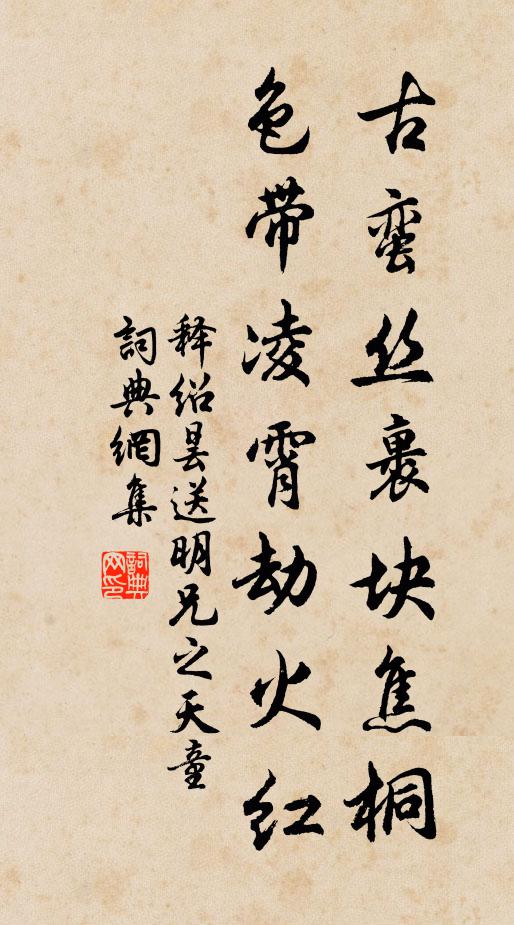 古蛮丝裹块焦桐
色带凌霄劫火红
释绍昙送明兄之天童
詞典網集
詞典网印